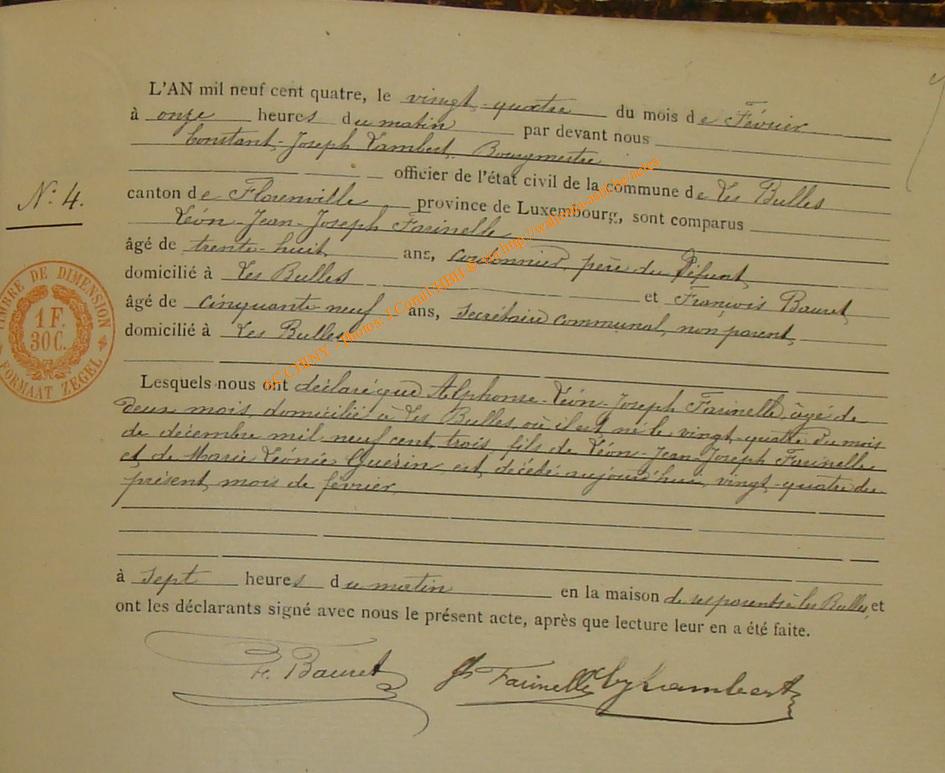 L'AN mil neuf cent quatre, le vingt-quatre du mois de Février
à onze heures du matin par devant nous
Constant-Joseph Lambert, Bourgmestre
officier de l'état civil de la commune de Les Bulles
N°: 4.
canton de Florenville province de Luxembourg, sont comparus
Léon-Jean-Joseph Farinelle
âgé de trente-huit ans, cordonnier, père du défunt,
domicilié à Les Bulles et François Bauret,
âgé de cinquante neuf ans, secrétaire communal, non parent,
domicilié à Les Bulles
TIMBRE DE DIMENSION
1 F.
30 C.
FORMAAT ZEGEL
Lesquels nous ont déclaré que Alphonse-Léon-Joseph Farinelle, âgé de
deux mois, domicilié à Les Bulles où il est né le vingt-quatre du mois
de décembre mil neuf cent trois, fils de Léon-Jean-Joseph Farinelle
et de Marie Léonie Guérin est décédé aujourd'hui, vingt-quatre du
présent mois de février
à sept heures du matin en la maison de ses parents à Les Bulles, et
ont les déclarants signé avec nous le présent acte, après que lecture leur en a été faite.
F. Bauret Farinelle Lambert